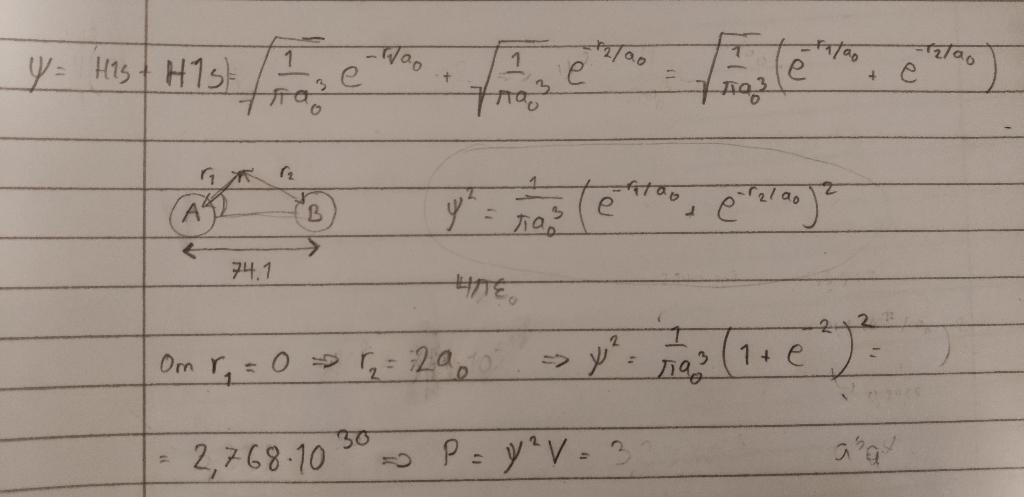 ψ = (H1s + H1s) = √(1/πa₀³) e^(-r₁/a₀) + √(1/πa₀³) e^(-r₂/a₀) = √(1/πa₀³) (e^(-r₁/a₀) + e^(-r₂/a₀))
r₁ r₂
A B
ψ² = 1/πa₀³ (e^(-r₁/a₀) + e^(-r₂/a₀))²
74.1
4πε₀
Om r₁ = 0 ⇒ r₂ = 2a₀ ⇒ ψ² = 1/πa₀³ (1 + e^(-2))² =
= 2,768·10³⁰ ⇒ P = ψ²V = 3